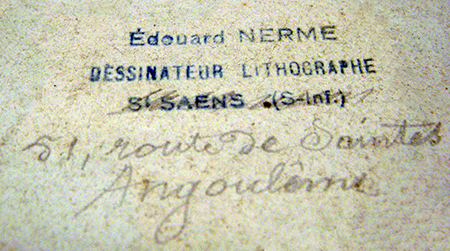 Édouard NERME
DESSINATEUR LITHOGRAPHE
St SAENS (S-Inf.)
51, route de Saintes
Angoulême